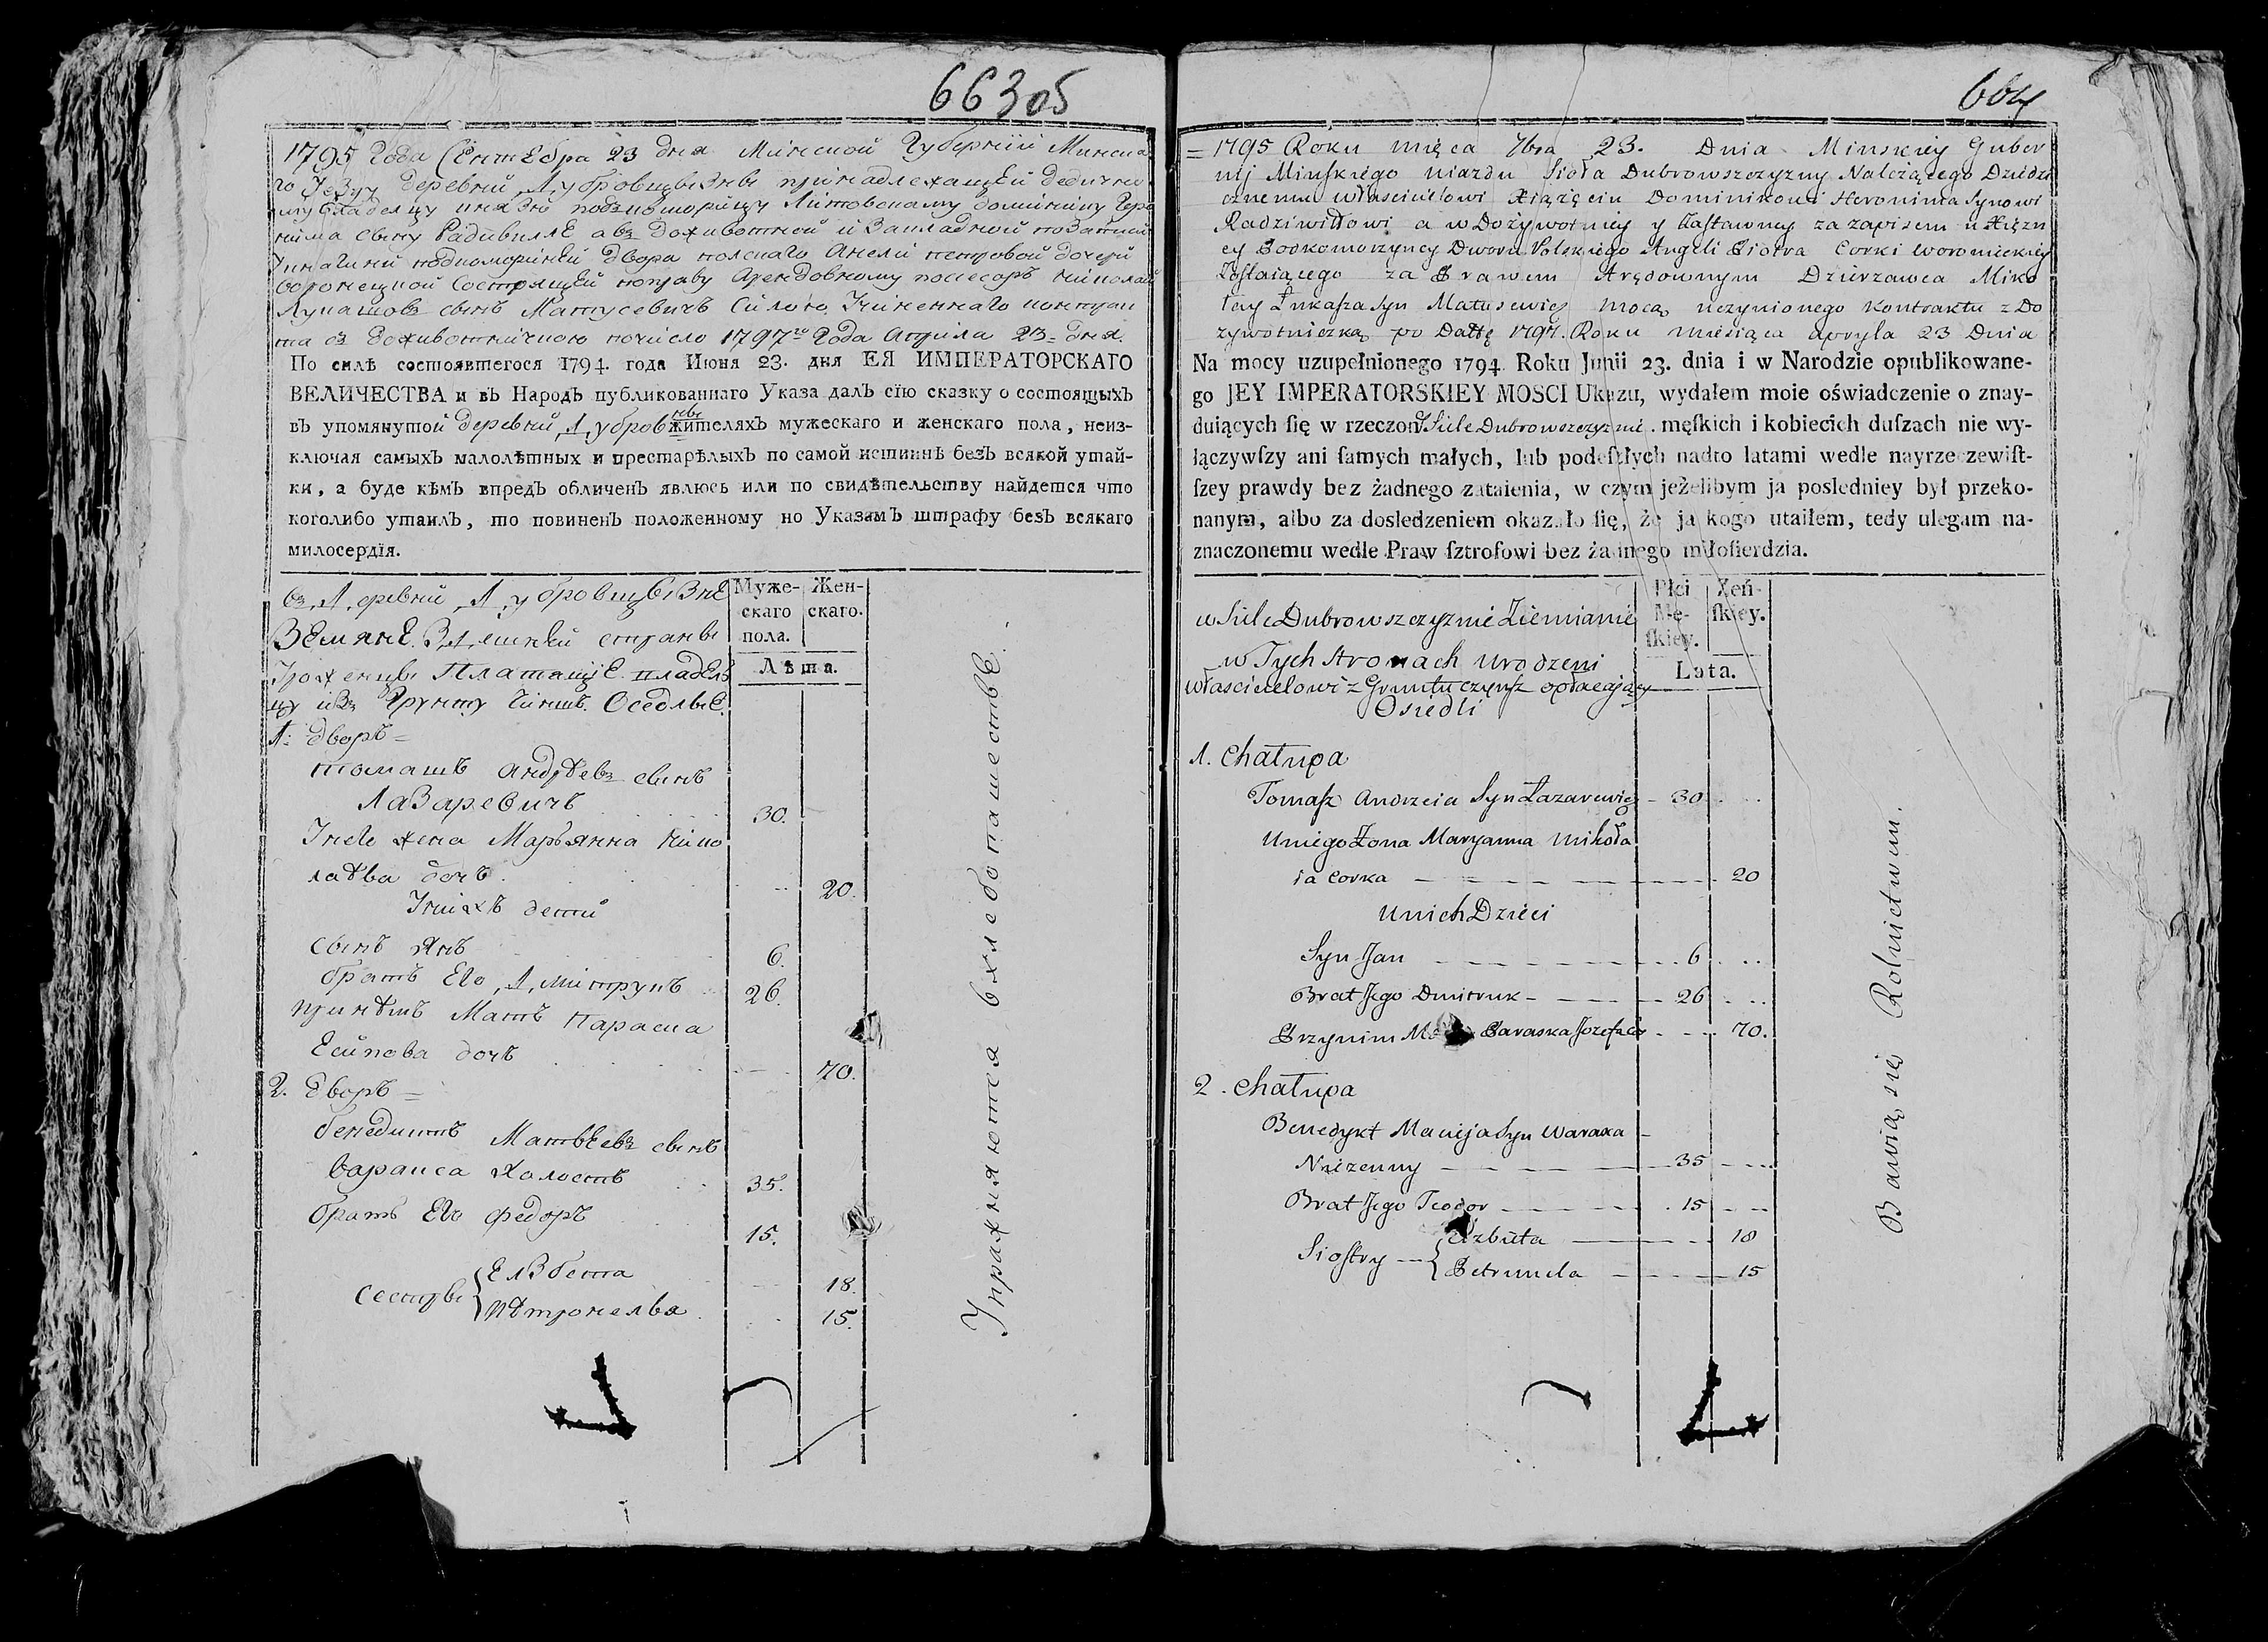 66305
1795 Года Сентебра 23 дня Минской Губернiи Минска
го Уезду деревнй Дубровщызны принадлежащей дедично
му владелцу князю подкоморицу Литовскому доминику Геро
нима сыну Радивилле а въ доживотной и Закладной позаписи
Дворa полскаго Анели петровой дочери
состоящей поправу Арендовному посесоръ Николай
Лукашовъ сынъ Матусевичъ силою Учиненнаго контрак
та съ доживотничкою почисло 1797го Года Априла 23= дня.
По силѣ состоявшегося 1794. года Июня 23. дня ЕЯ ИМПЕРАТОРСКАГО
ВЕЛИЧЕСТВА и въ Народъ публикованнаго Указа далъ сїю сказку о состоящыхъ
въ упомянутой деревнй Дубров жителяхъ мужескаго и женскаго пола, неиз-
ключая самыхъ малолѣтныхъ и престарѣлыхъ по самой истиннѣ безъ всякой утай-
ки, а буде кѣмъ впредъ обличенъ явлюсь или по свидѣтельству найдется что
коголибо утаилъ, то повиненъ положенному по Указамъ штрафу безъ всякаго
милосердїя.
Муже-скаго пола. Жен-скаго.
Лѣта.
въ Деревнй Дубровщызне
Земяне Здешнеи страны
Урожденцы Платащiе владел
цу изъ Грунту Чиншъ. Оседлые.
1: дворъ =
томашъ андреевъ сынъ
Лазаревичъ 30.
Унего жена Марьянна Нико
лаева дочъ. 20.
Унихъ дети
сынъ Янъ 6.
братъ Его Дмитрукъ 26.
принемъ Мать Параска
Есипова дочъ 70.
2. дворъ =
бенедиктъ Матвеевъ сынъ
Варакса Холостъ 35.
братъ Его федоръ 15.
Сестры { Елзбета 18.
Петронеля 15.
Упражняются в хлебопашестве.
664
= 1795 Roku mięca 7bra 23. Dnia Minskiey Guber
nij Minskiego uiazdu Sioła Dubrowszczyzny Należącego Dziedzi
cznemu włascicielowi Xiążęciu Dominikowi Heronima Synowi
Radziwiłłowi a w Dożywotniey y Zastawney za zapisem u Xiężn
ey Podkomorzyney Dworu Polskiego Angeli Piotra Corki Woronieckiey
Zostaiącego za Prawem Arędownym Dzierzawca Miko
łay Łukasza Syn Matusewicz mocą uczynionego Kontraktu z Do
żywotniczką po Dattę 1797. Roku miesiąca apryla 23 Dnia
Na mocy uzupełnionego 1794 Roku Junii 23. dnia i w Narodzie opublikowane-
go JEY IMPERATORSKIEY MOSCI Ukazu, wydałem moie oświadczenie o znay-
duiących ſię w rzeczoney Siele Dubrowszczyznie. męſkich i kobiecich duſzach nie wy-
łączywſzy ani ſamych małych, lub podeſzłych nadto latami wedle nayrzeczewiſt-
ſzey prawdy bez żadnego zataienia, w czym jeżelibym ja posledniey był przeko-
nanym, albo za dosledzeniem okazało ſię, że ja kogo utaiłem, tedy ulegam na-
znaczonemu wedle Praw ſztrofowi bez żadnego miłoſierdzia.
Płci Mę-ſkiey. Żeń-ſkiey.
Lata.
w Siele Dubrowszczyznie Ziemianie
w Tych Stronach urodzeni
włascicielowi z Gruntu czynsz opłacaiący
Osiedli
1. Chałupa
Tomasz Andrzeia Syn Łazarewicz - 30
Uniego Żona Maryanna Mikoła
ia Corka 20
Unich Dzieci
Syn Jan 6
Brat Jego Dmitruk 26
Przynim Paraska Jozefa 70.
2. Chałupa
Benedykt Macieja Syn Waraxa
Nieżenny 35
Brat Jego Teodor 15
Siostry { Elzbieta 18
Petrunela 15
Bawią się Rolnictwem.